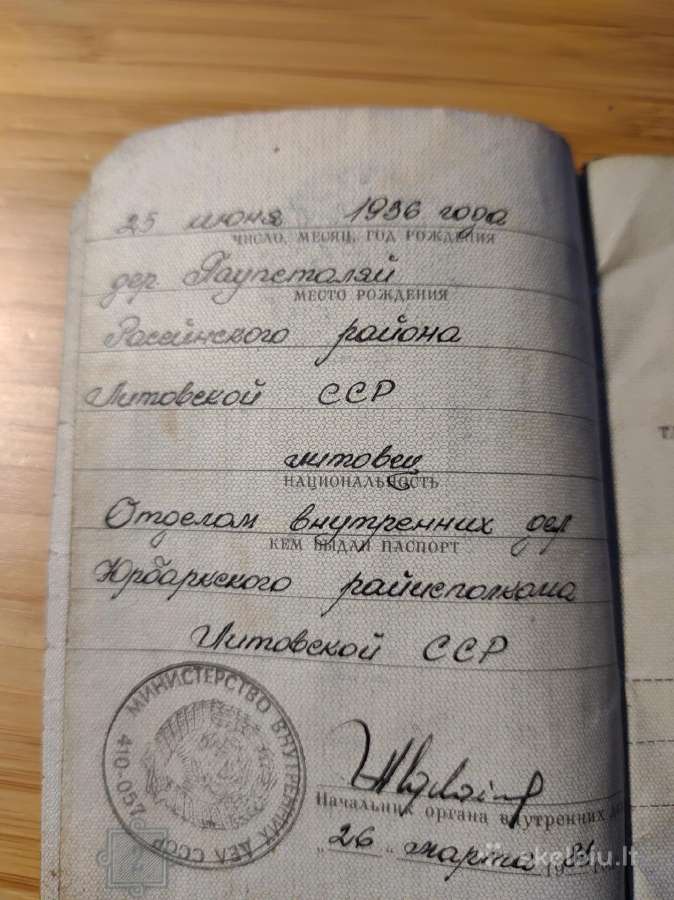 25 июня 1936 года
ЧИСЛО, МЕСЯЦ, ГОД РОЖДЕНИЯ
дер. Паупсталяй
МЕСТО РОЖДЕНИЯ
Расейнского района
Литовской ССР
литовец
НАЦИОНАЛЬНОСТЬ
Отделом внутренних дел
КЕМ ВЫДАН ПАСПОРТ
Юрбаркского райисполкома
Литовской ССР
МИНИСТЕРСТВО ВНУТРЕННИХ ДЕЛ СССР
410-057
Начальник органа внутренних
"26" марта 1981
skelbiu.lt